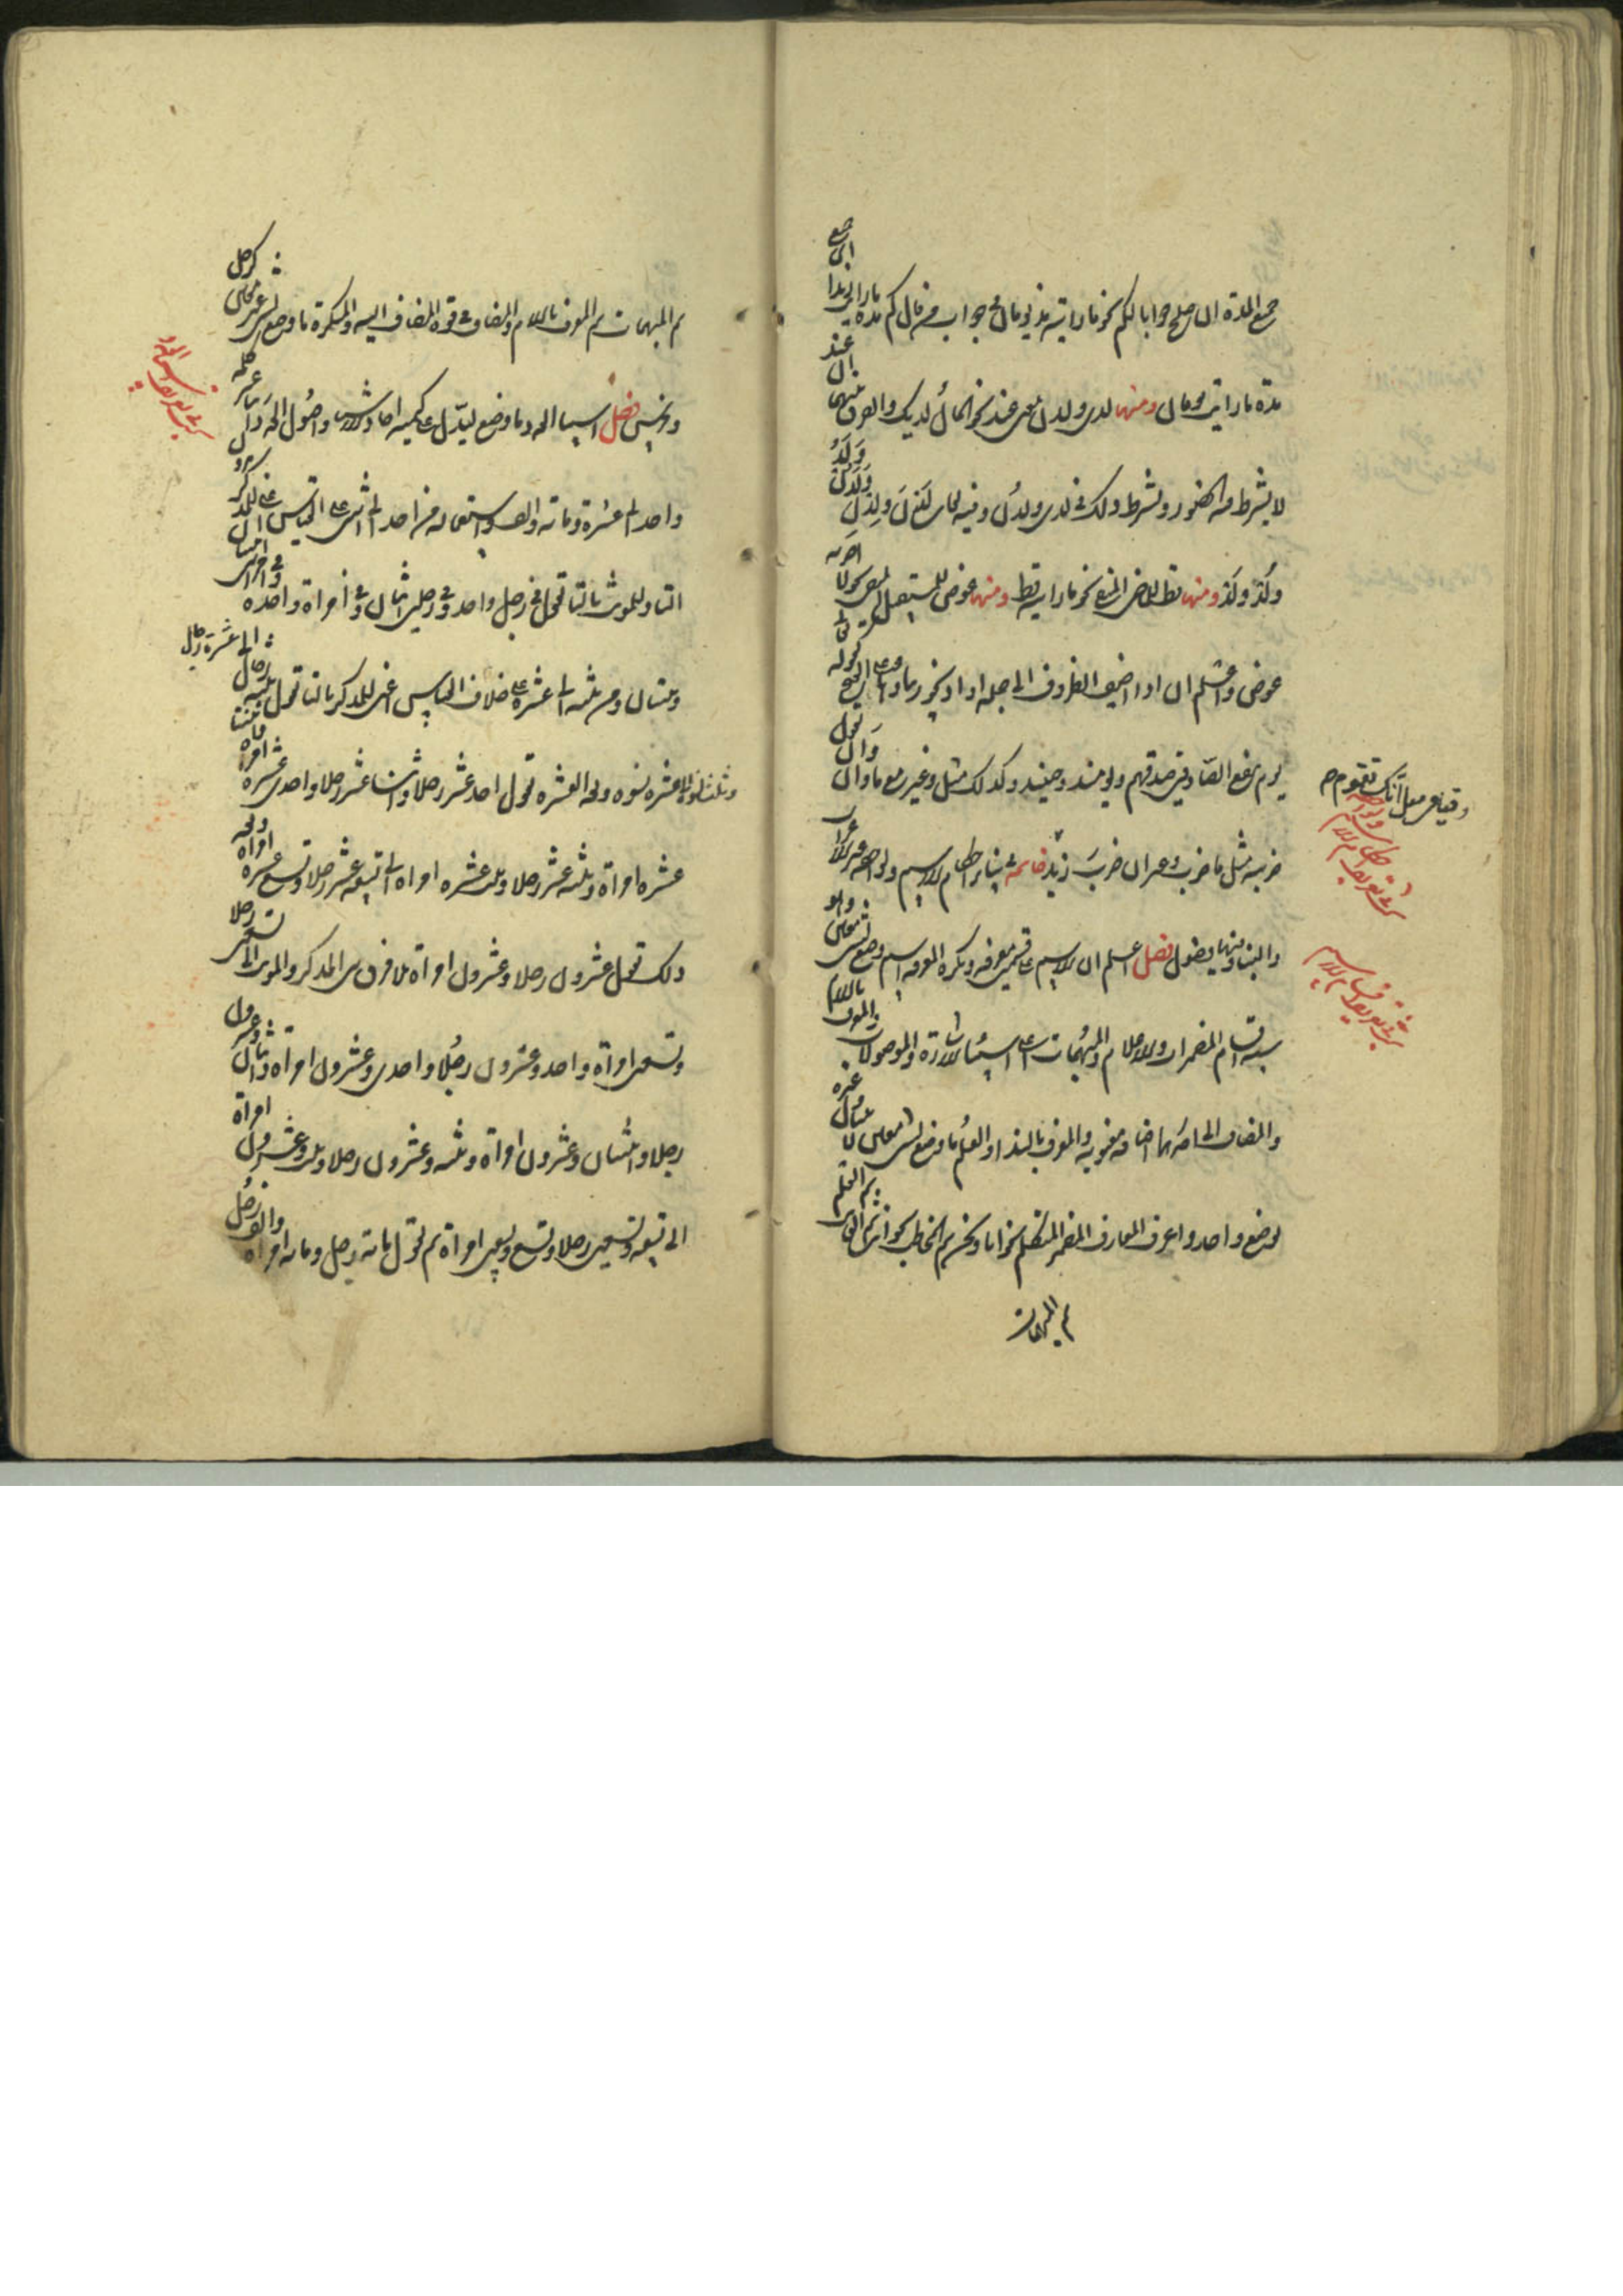 جمع المدة ان صلح جوابا لكم نحو ما رايته مذ يومان في جواب من قال كم مدة ما رايت زيدا اي جميع
مدة ما رايته يومان ومنها لدى ولدن بمعنى عند نحو المال لديك والفرق بينهما ان عند
لا يشترط فيه الحضور ويشترط ذلك في لدى ولدن وفيه لغات لَدَنْ ولَدُنْ ولَدْ
ولَدُ ولِدْ ومنها قط للماضي المنفي نحو ما رايته قط ومنها عوض للمستقبل المنفي نحو لا اضربه
عوض واعلم انه اذا اضيف الظروف الى جملة او اذ يجوز بناؤها على الفتح كقوله تعالى
يوم ينفع الصادقين صدقهم ويومئذ وحينئذ وكذلك مثل وغير مع ما وان وَانَّ تقول
ضربته مثل ما ضرب وغير ان ضرب زيد خاتمة في سائر احكام الاسم ولواحقه غير الاعراب
والبناء وفيها فصول فصل اعلم ان الاسم على قسمين معرفة ونكرة المعرفة اسم وضع لشئ معين وهو
ستة اقسام المضمرات والاعلام والمبهمات اعني اسماء الاشارات والموصولات والمعرف باللام
والمضاف الى احدهما اضافة معنوية والمعرف بالنداء والعلم ما وضع لشئ معين لا يتناول غيره
بوضع واحد واعرف المعارف المضمر المتكلم نحو انا ونحن ثم المخاطب نحو انت ثم الغائب ثم العلم
ثم المبهمات
وقيامي مثل انك تقوم
ثم المبهمات ثم المعرف باللام والمضاف في قوة المضاف اليه والنكرة ما وضع لشئ غير معين كرجل
وفرس فصل اسماء العدد ما وضع ليدل على كمية احاد الاشياء واصول العدد اثنتا عشر كلمة
واحد الى عشرة ومائة والف واستعماله من احد الى اثنين على القياس اعني للمذكر بدون
التاء وللمؤنث بالتاء تقول في رجل واحد وفي رجلين اثنان وفي امراة واحدة وفي امراتين اثنتان
وثنتان ومن ثلثة الى عشرة على خلاف القياس اعني للمذكر بالتاء تقول ثلثة رجال الى عشرة رجال
وثلث نسوة الى عشر نسوة وبعد العشرة تقول احد عشر رجلا واثنا عشر رجلا واحدى عشرة امراة واثنتا
عشرة امراة وثلثة عشر رجلا وثلث عشرة امراة الى تسعة عشر رجلا وتسع عشرة امراة وبعد
ذلك تقول عشرون رجلا وعشرون امراة بلا فرق بين المذكر والمؤنث الى تسعين رجلا
وتسعين امراة واحد وعشرون رجلا واحدى وعشرون امراة واثنان وعشرون
رجلا واثنتان وعشرون امراة وثلثة وعشرون رجلا وثلث وعشرون امراة
الى تسعة وتسعين رجلا وتسع وتسعين امراة ثم تقول مائة رجل ومائة امراة والف رجل